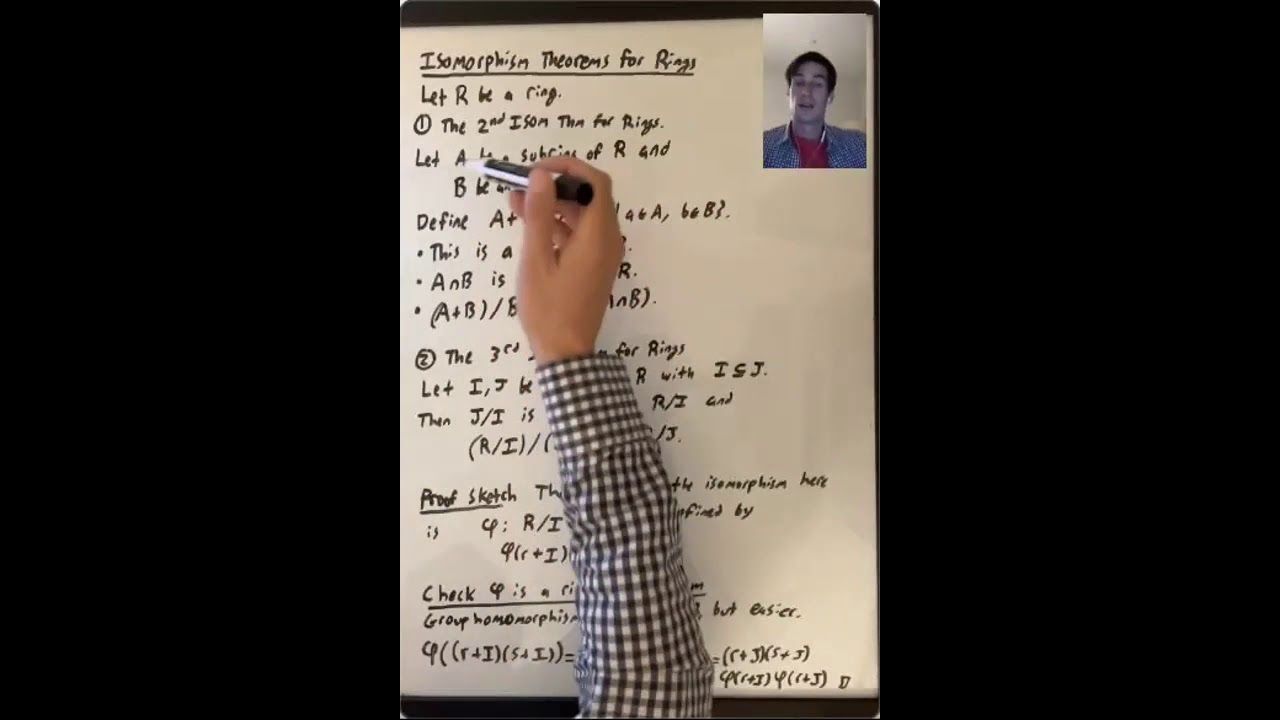 Isomorphism Theorems for Rings
Let R be a ring.
① The 2nd Isom Thm for Rings.
Let A be a subring of R and
B be
Define A+ a∈A, b∈B}.
• This is a
• A∩B is R.
• (A+B)/B ∩B).
② The 3rd for Rings
Let I, J be R with I⊆J.
Then J/I is R/I and
(R/I)/( /J.
Proof Sketch the isomorphism here
is φ: R/I fined by
φ(r+I)
Check φ is a ri m
Group homomorphism but easier.
φ((r+I)(s+I))= =(r+J)(s+J)
φ(r+I)φ(r+J) □